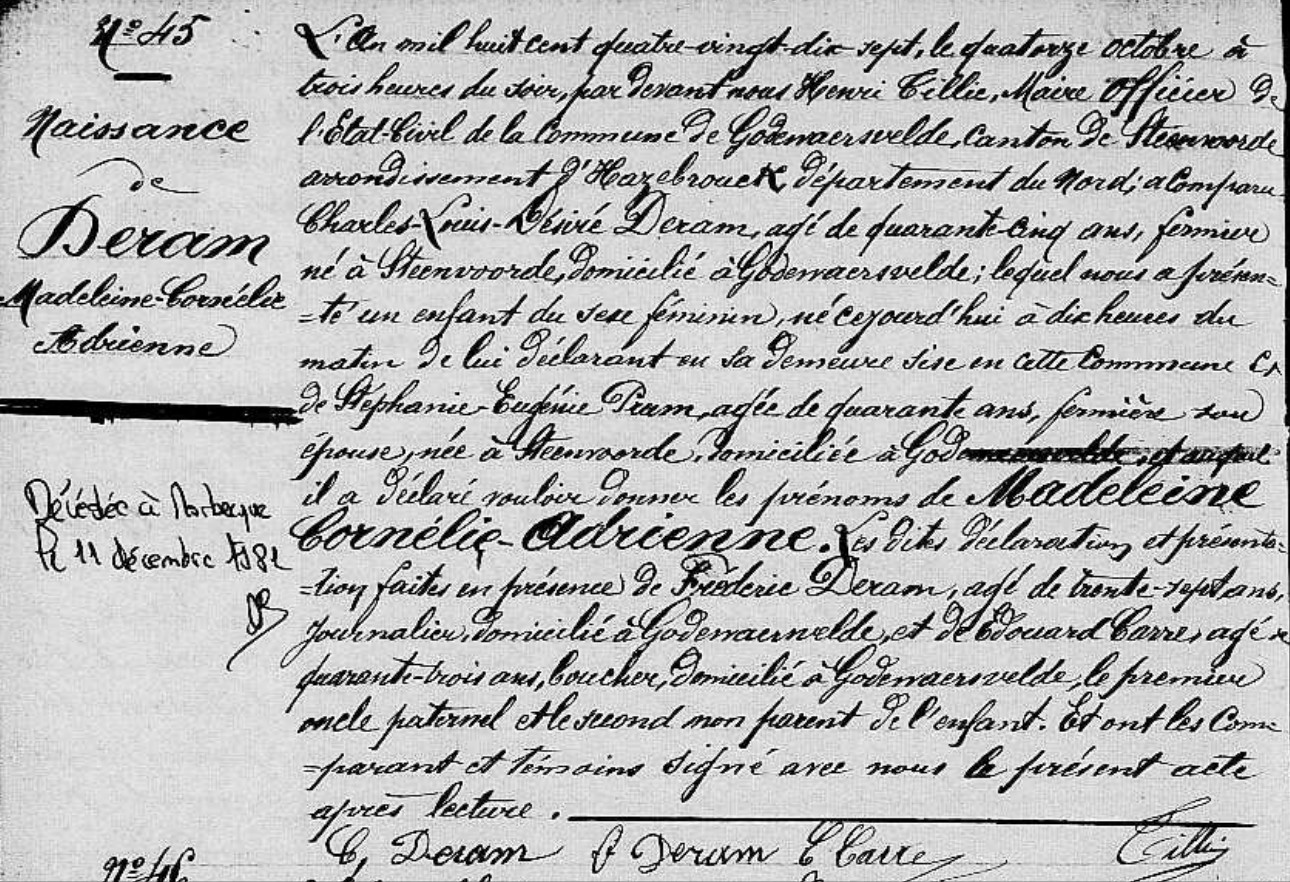 N° 45
Naissance
de
Deram
Madeleine-Cornélie
Adrienne
Décédée à Morbecque
le 11 décembre 1981
L'An mil huit cent quatre-vingt-dix sept, le quatorze octobre à
trois heures du soir, par devant nous Henri Tillie, Maire Officier de
l'Etat-Civil de la Commune de Godewaersvelde, Canton de Steenvoorde
arrondissement d'Hazebrouck département du Nord; a Comparu
Charles-Louis-Désiré Deram, agé de quarante-cinq ans, fermier
né à Steenvoorde, domicilié à Godewaersvelde; lequel nous a présen=
=té un enfant du sexe féminin, né cejourd'hui à dix heures du
matin de lui déclarant en sa demeure sise en cette Commune et
de Stéphanie-Eugénie Pram, agée de quarante ans, fermière son
épouse, née à Steenvoorde, domiciliée à Godewaersvelde, et auquel
il a déclaré vouloir donner les prénoms de Madeleine
Cornélie-Adrienne. Les dites déclaration et présenta=
=tion faites en présence de Frédéric Deram, agé de trente-sept ans,
Journalier, domicilié à Godewaersvelde, et de Edouard Carre, agé de
quarante-trois ans, boucher, domicilié à Godewaersvelde, le premier
oncle paternel et le second non parent de l'enfant. Et ont les Com=
=parant et témoins signé avec nous le présent acte
après lecture.
C, Deram f Deram E Carre Tillie
N° 46